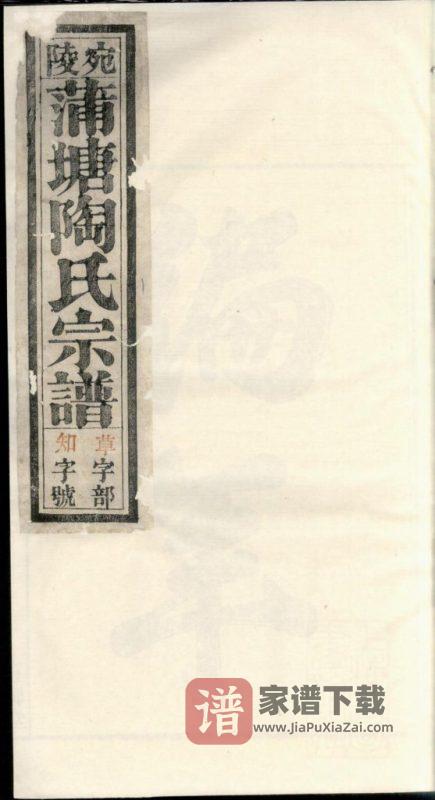 宛陵
蒲塘陶氏宗譜
草字部
知字號
谱
家谱下载
www.JiaPuXiaZai.com